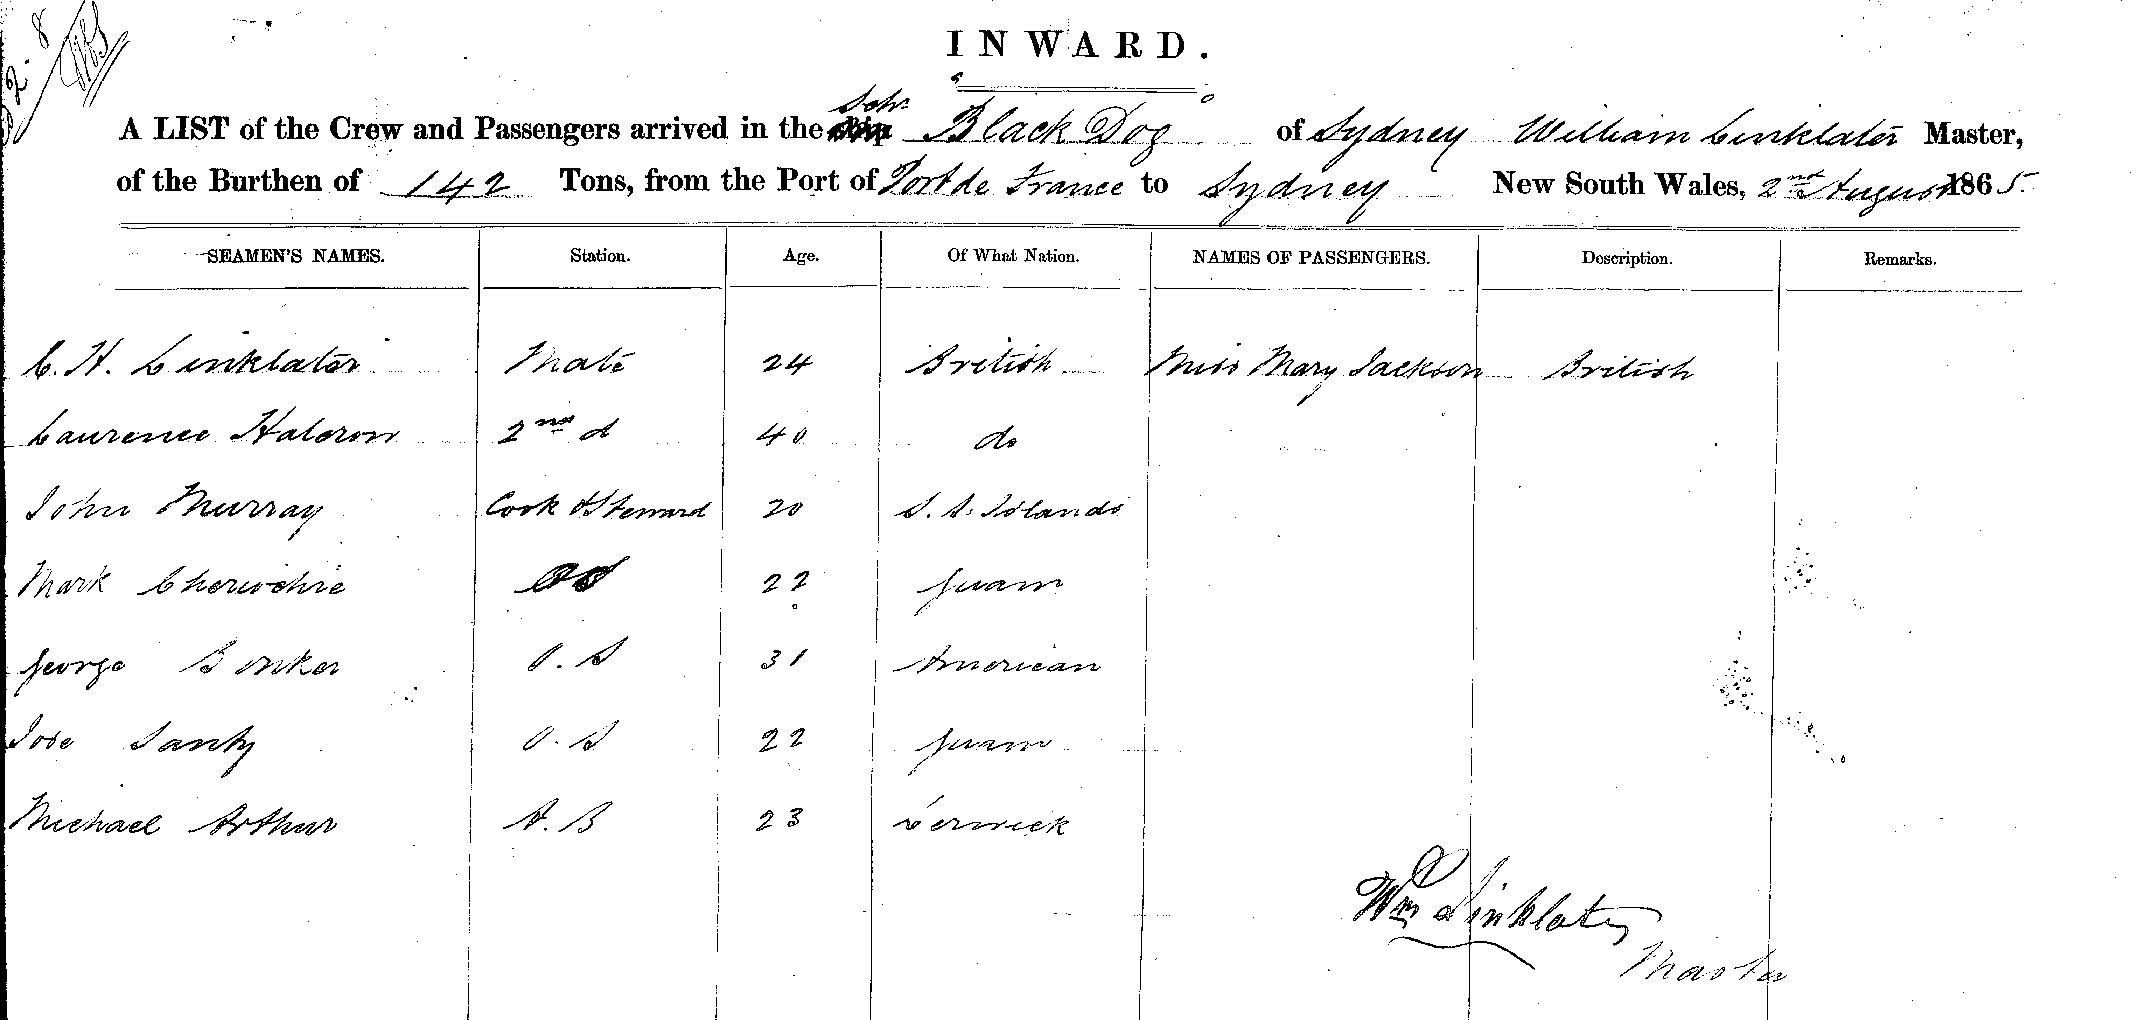 INWARD.
A LIST of the Crew and Passengers arrived in the Schr Black Dog of Sydney William Linklater Master,
of the Burthen of 142 Tons, from the Port of Port de France to Sydney New South Wales, 2nd August 1865.
SEAMEN'S NAMES. Station. Age. Of What Nation. NAMES OF PASSENGERS. Description. Remarks.
C. H. Linklater Mate 24 British Miss Mary Jackson British
Laurence Halcrow 2nd d 40 do
John Murray Cook & Steward 20 S. S. Islands
Mark 22 Guam
George Bonker O. S 31 American
Jose Santy O. S 22 Guam
Michael Arthur A. B 23 Lerwick
Wm Linklater
Master